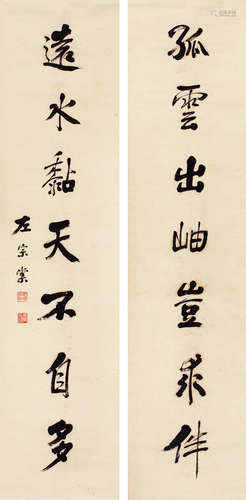 孤雲出岫豈求伴
遠水黏天不自多
左宗棠